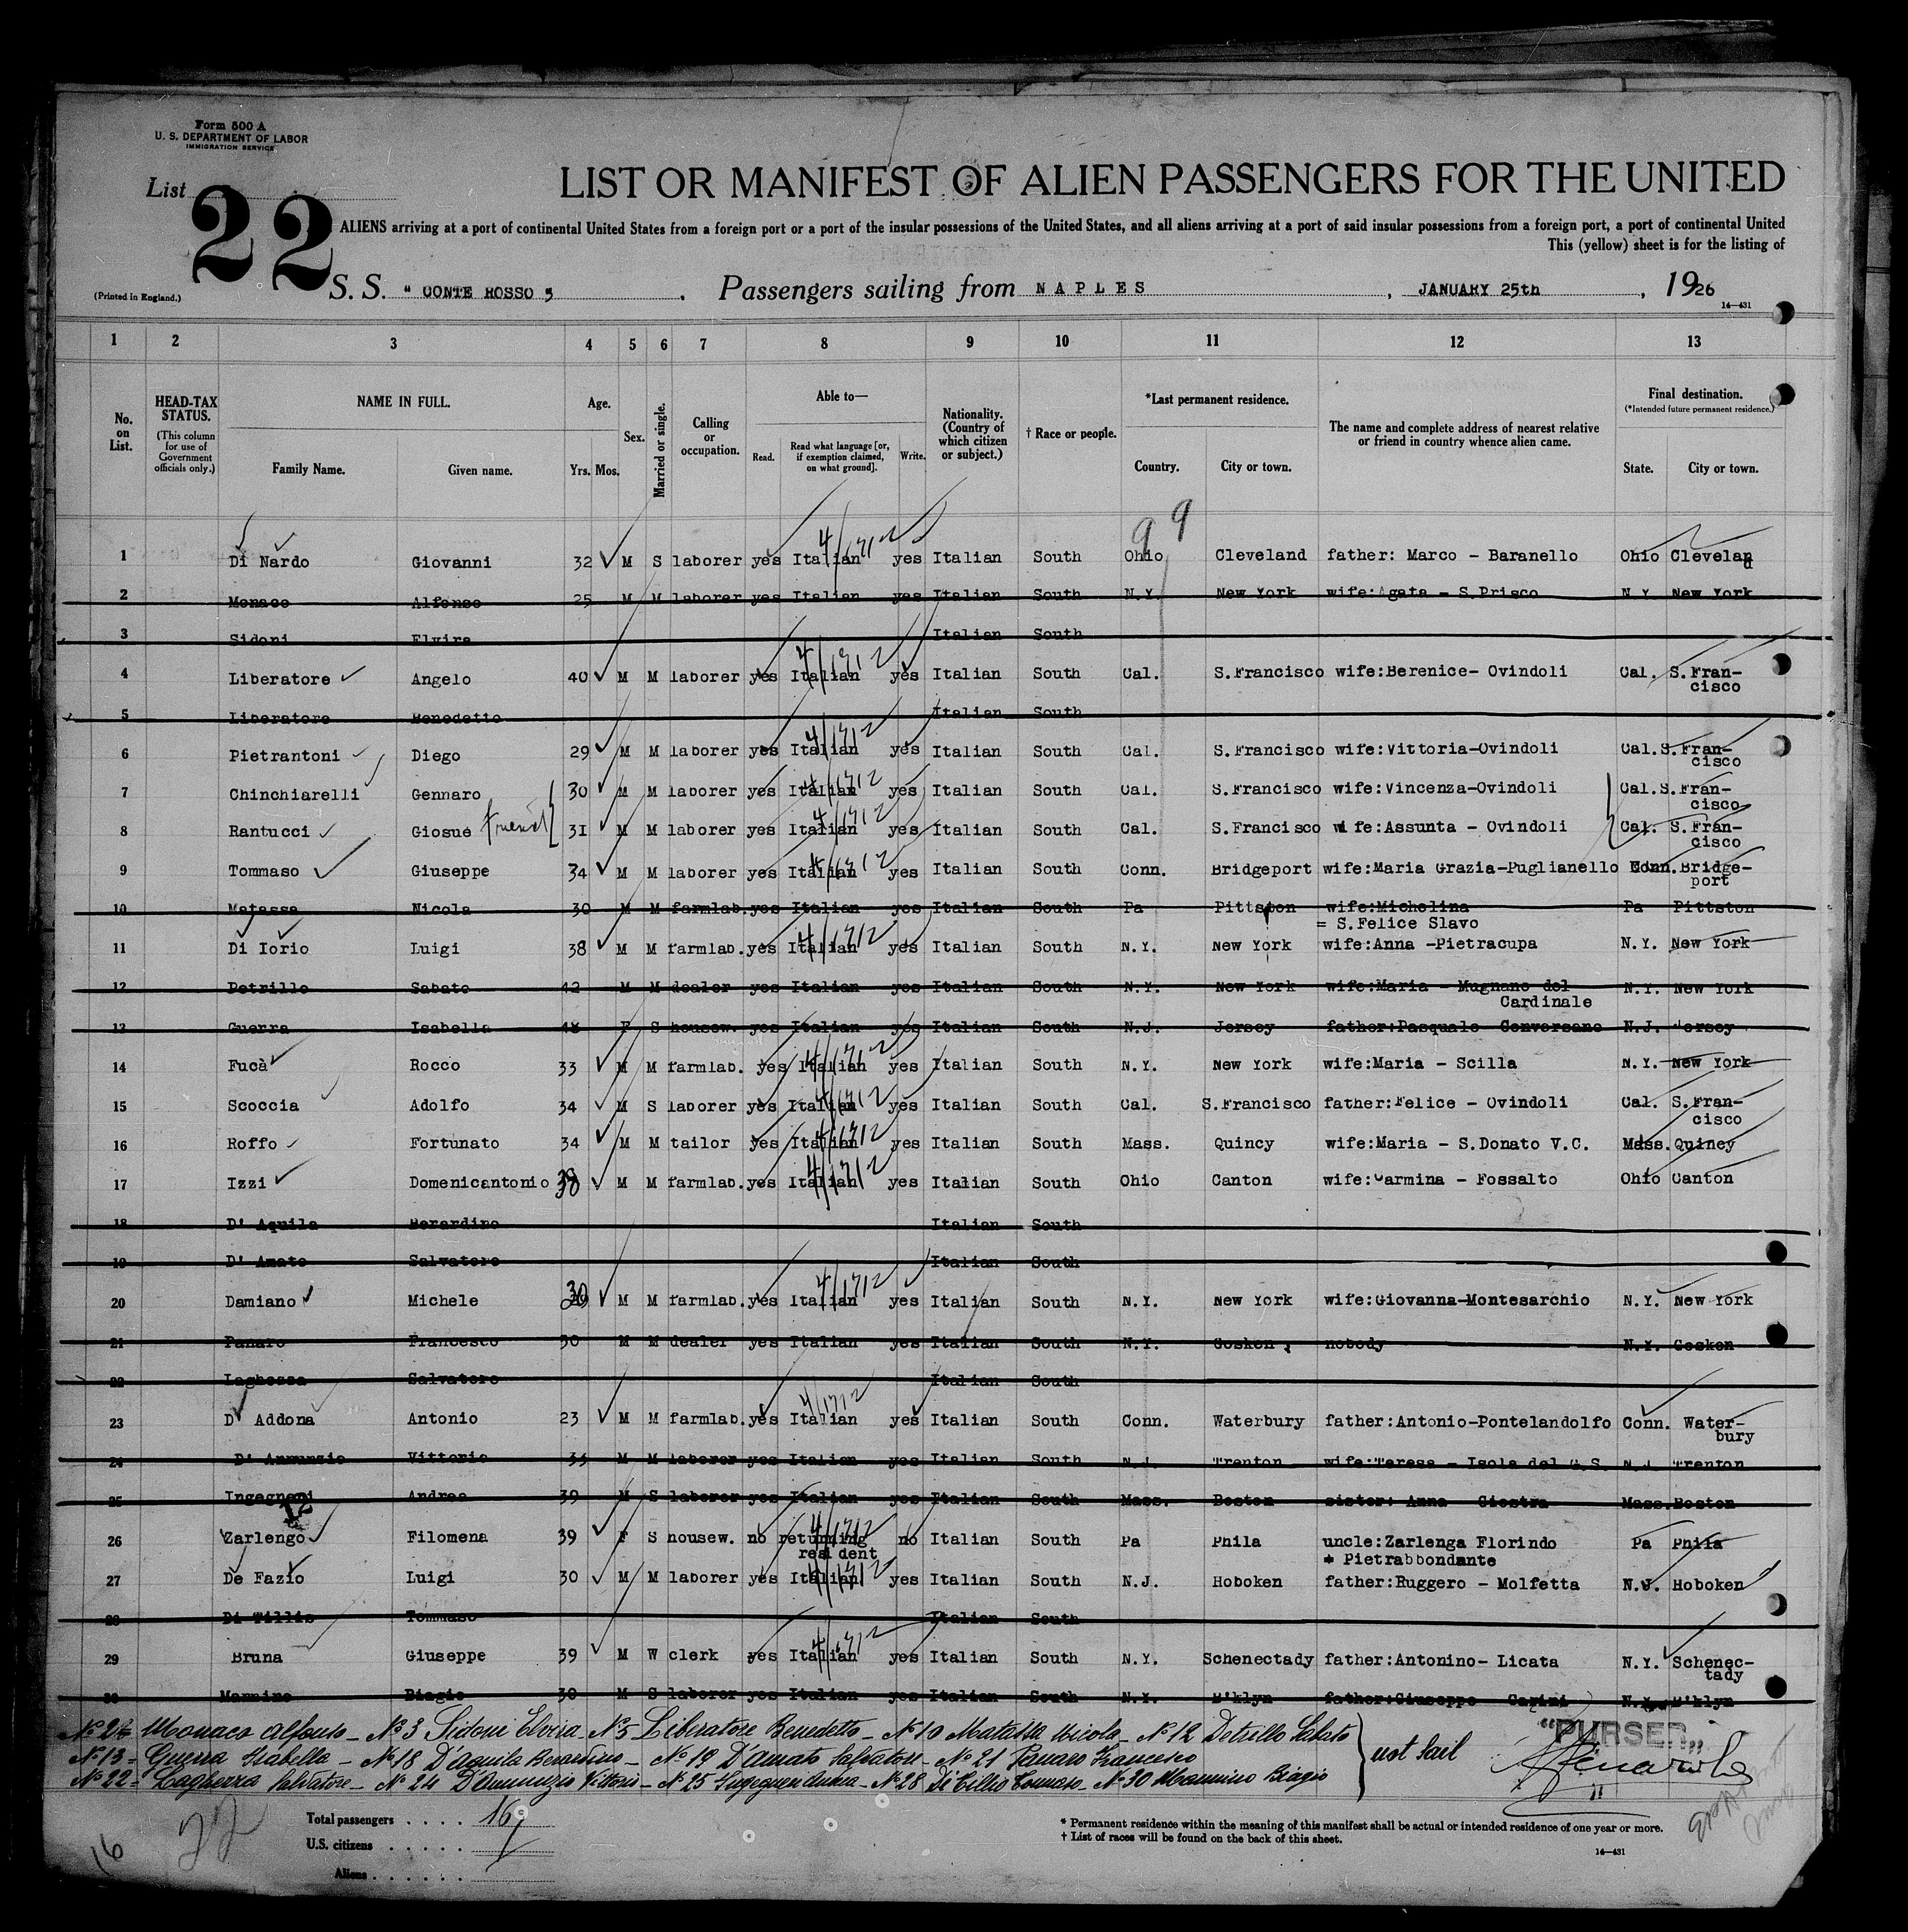 Form 500 A
U. S. DEPARTMENT OF LABOR
IMMIGRATION SERVICE
List 22
LIST OR MANIFEST OF ALIEN PASSENGERS FOR THE UNITED
ALIENS arriving at a port of continental United States from a foreign port or a port of the insular possessions of the United States, and all aliens arriving at a port of said insular possessions from a foreign port, a port of continental United
This (yellow) sheet is for the listing of
(Printed in England.)
S. S. " CONTE ROSSO " . Passengers sailing from NAPLES , JANUARY 25th , 1926
14—431
1 2 3 4 5 6 7 8 9 10 11 12 13
No. on List.
HEAD-TAX STATUS. (This column for use of Government officials only.)
NAME IN FULL. Family Name. Given name.
Age. Yrs. Mos.
Sex.
Married or single.
Calling or occupation.
Able to— Read. Read what language [or, if exemption claimed, on what ground]. Write.
Nationality. (Country of which citizen or subject.)
† Race or people.
*Last permanent residence. Country. City or town.
The name and complete address of nearest relative or friend in country whence alien came.
Final destination. (*Intended future permanent residence.) State. City or town.
99
1 Di Nardo Giovanni 32 M S laborer yes Italian yes Italian South Ohio Cleveland father: Marco - Baranello Ohio Cleveland
2 Monaco Alfonso 25 M M laborer yes Italian yes Italian South N.Y. New York wife:Agata - S.Prisco N.Y. New York
3 Sidoni Elvira Italian South
4 Liberatore Angelo 40 M M laborer yes Italian yes Italian South Cal. S.Francisco wife:Berenice- Ovindoli Cal. S.Fran-
cisco
5 Liberatore Benedetto Italian South
6 Pietrantoni Diego 29 M M laborer yes Italian yes Italian South Cal. S.Francisco wife:Vittoria-Ovindoli Cal.S.Fran-
cisco
7 Chinchiarelli Gennaro 30 M M laborer yes Italian yes Italian South Cal. S.Francisco wife:Vincenza-Ovindoli Cal.S.Fran-
cisco
8 Rantucci Giosuè friend 31 M M laborer yes Italian yes Italian South Cal. S.Francisco wife:Assunta - Ovindoli Cal. S.Fran-
cisco
9 Tommaso Giuseppe 34 M M laborer yes Italian yes Italian South Conn. Bridgeport wife:Maria Grazia-Puglianello Conn.Bridge-
port
10 Matassa Nicola 30 M M farmlab.yes Italian yes Italian South Pa Pittston wife:Michelina Pa Pittston
= S.Felice Slavo
11 Di Iorio Luigi 38 M M farmlab.yes Italian yes Italian South N.Y. New York wife:Anna -Pietracupa N.Y. New York
12 Petrillo Sabato 42 M M dealer yes Italian yes Italian South N.Y. New York wife:Maria - Mugnano del N.Y. New York
Cardinale
13 Guerra Isabella 48 F S housew. yes Italian yes Italian South N.J. Jersey father:Pasquale Conversano N.J. Jersey
14 Fucà Rocco 33 M M farmlab. yes Italian yes Italian South N.Y. New York wife:Maria - Scilla N.Y. New York
15 Scoccia Adolfo 34 M S laborer yes Italian yes Italian South Cal. S.Francisco father:Felice - Ovindoli Cal. S.Fran-
cisco
16 Roffo Fortunato 34 M M tailor yes Italian yes Italian South Mass. Quincy wife:Maria - S.Donato V.C. Mass.Quincy
17 Izzi Domenicantonio 38 M M farmlab.yes Italian yes Italian South Ohio Canton wife:Carmina - Fossalto Ohio Canton
18 D' Aquila Berardino Italian South
19 D' Amato Salvatore Italian South
20 Damiano Michele 30 M M farmlab.yes Italian yes Italian South N.Y. New York wife:Giovanna-Montesarchio N.Y. New York
21 Panaro Francesco 30 M M dealer yes Italian yes Italian South N.Y. Gosken nobody N.Y. Gosken
22 Laghezza Salvatore Italian South
23 D' Addona Antonio 23 M M farmlab.yes Italian yes Italian South Conn. Waterbury father:Antonio-Pontelandolfo Conn. Water-
bury
24 D' Annunzio Vittorio 33 M M laborer yes Italian yes Italian South N.J. Trenton wife:Teresa - Isola del G.S. N.J. Trenton
25 Ingegneri Andrea 39 M S laborer yes Italian yes Italian South Mass. Boston sister: Anna Giostra Mass.Boston
26 Zarlengo Filomena 39 F S housew. no returning no Italian South Pa Phila uncle:Zarlenga Florindo Pa Phila
resident * Pietrabbondante
27 De Fazio Luigi 30 M M laborer yes Italian yes Italian South N.J. Hoboken father:Ruggero - Molfetta N.J. Hoboken
28 Di Tillio Tommaso Italian South
29 Bruna Giuseppe 39 M W clerk yes Italian yes Italian South N.Y. Schenectady father:Antonino- Licata N.Y. Schenec-
tady
30 Mannino Biagio 30 M S laborer yes Italian yes Italian South N.Y. B'klyn father:Giuseppe Carini N.Y. B'klyn
No 2 Monaco Alfonso - No 3 Sidoni Elvira - No 5 Liberatore Benedetto - No 10 Matassa Nicola - No 12 Petrillo Sabato
No 13 - Guerra Isabella - No 18 D'Aquila Berardino - No 19 D'Amato Salvatore - No 21 Panaro Francesco
No 22 - Laghezza Salvatore - No 24 D'Annunzio Vittorio - No 25 Ingegneri Andrea - No 28 Di Tillio Tommaso - No 30 Mannino Biagio
not sail
"PURSER"
Total passengers . . . . 16
U.S. citizens . . . . .
Aliens . . . . . .
22
16
* Permanent residence within the meaning of this manifest shall be actual or intended residence of one year or more.
† List of races will be found on the back of this sheet.
14—431